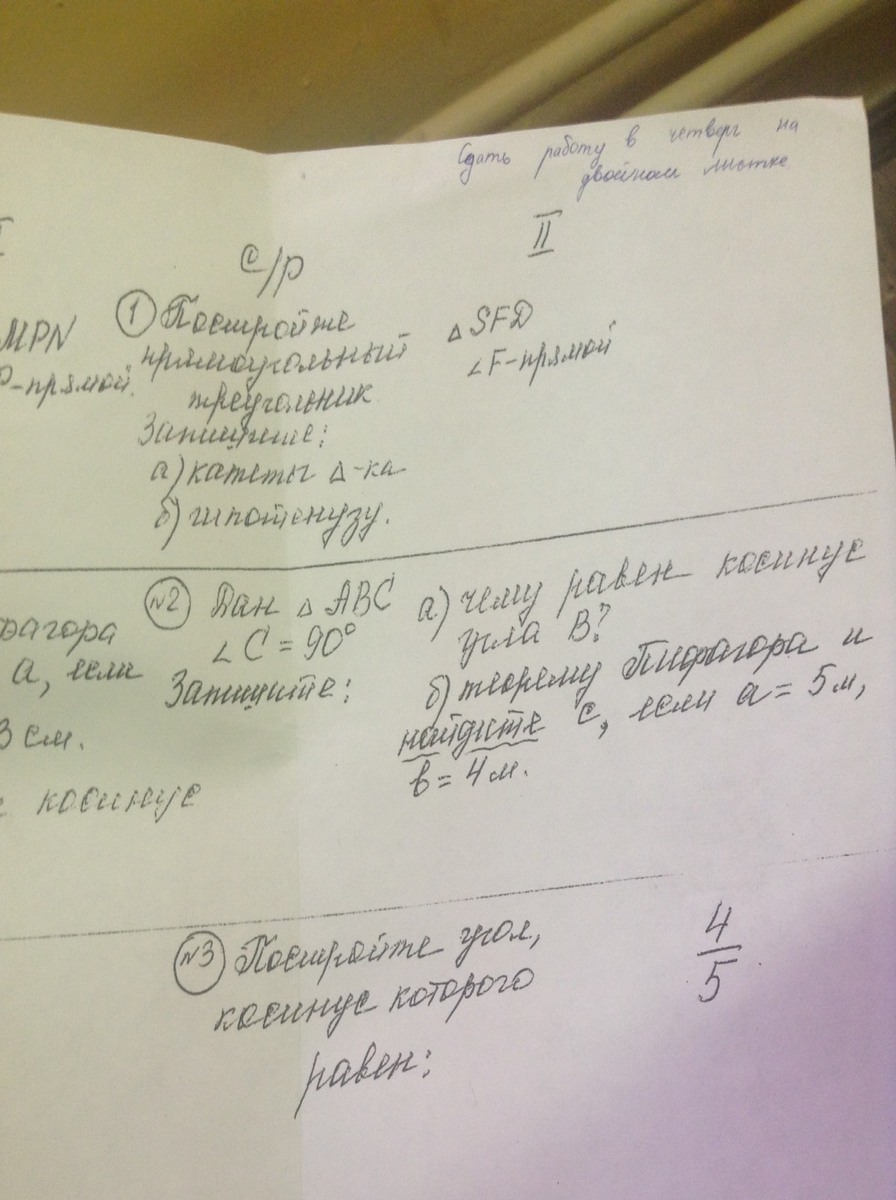 Сдать работу в четверг на
двойном листке
I
С/р
II
MPN
Р-прямой.
1 Постройте
прямоугольный
треугольник
Запишите:
а) катеты Δ-ка
б) гипотенузу.
Δ SFD
∠F-прямой
фагора
а, если
3 см.
косинус
N2 Дан Δ ABC
∠C = 90°
Запишите:
а) чему равен косинус
угла В?
б) теорему Пифагора и
найдите с, если a = 5м,
в = 4м.
N3 Постройте угол,
косинус которого
равен:
4
5